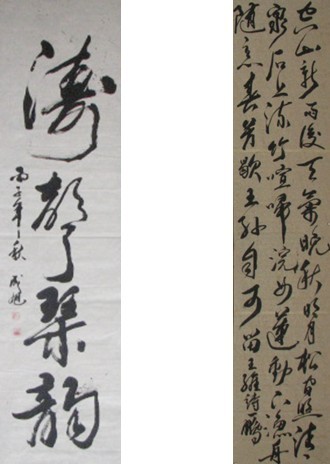 濤聲琴韵
丙子年之秋
空山新雨後天氣晚秋明月松間照清
泉石上流竹喧歸浣女蓮動下漁舟
隨意春芳歇王孫自可留王維詩鵬